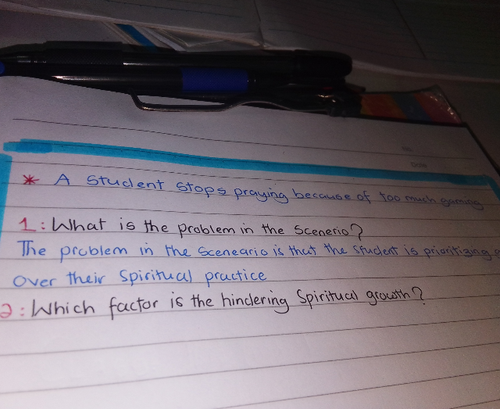 * A Student Stops praying because of too much gaming
1: What is the problem in the Scenerio?
The problem in the Sceneario is that the Student is prioritizing
over their Spiritual practice
2: Which factor is the hindering Spiritual growth?